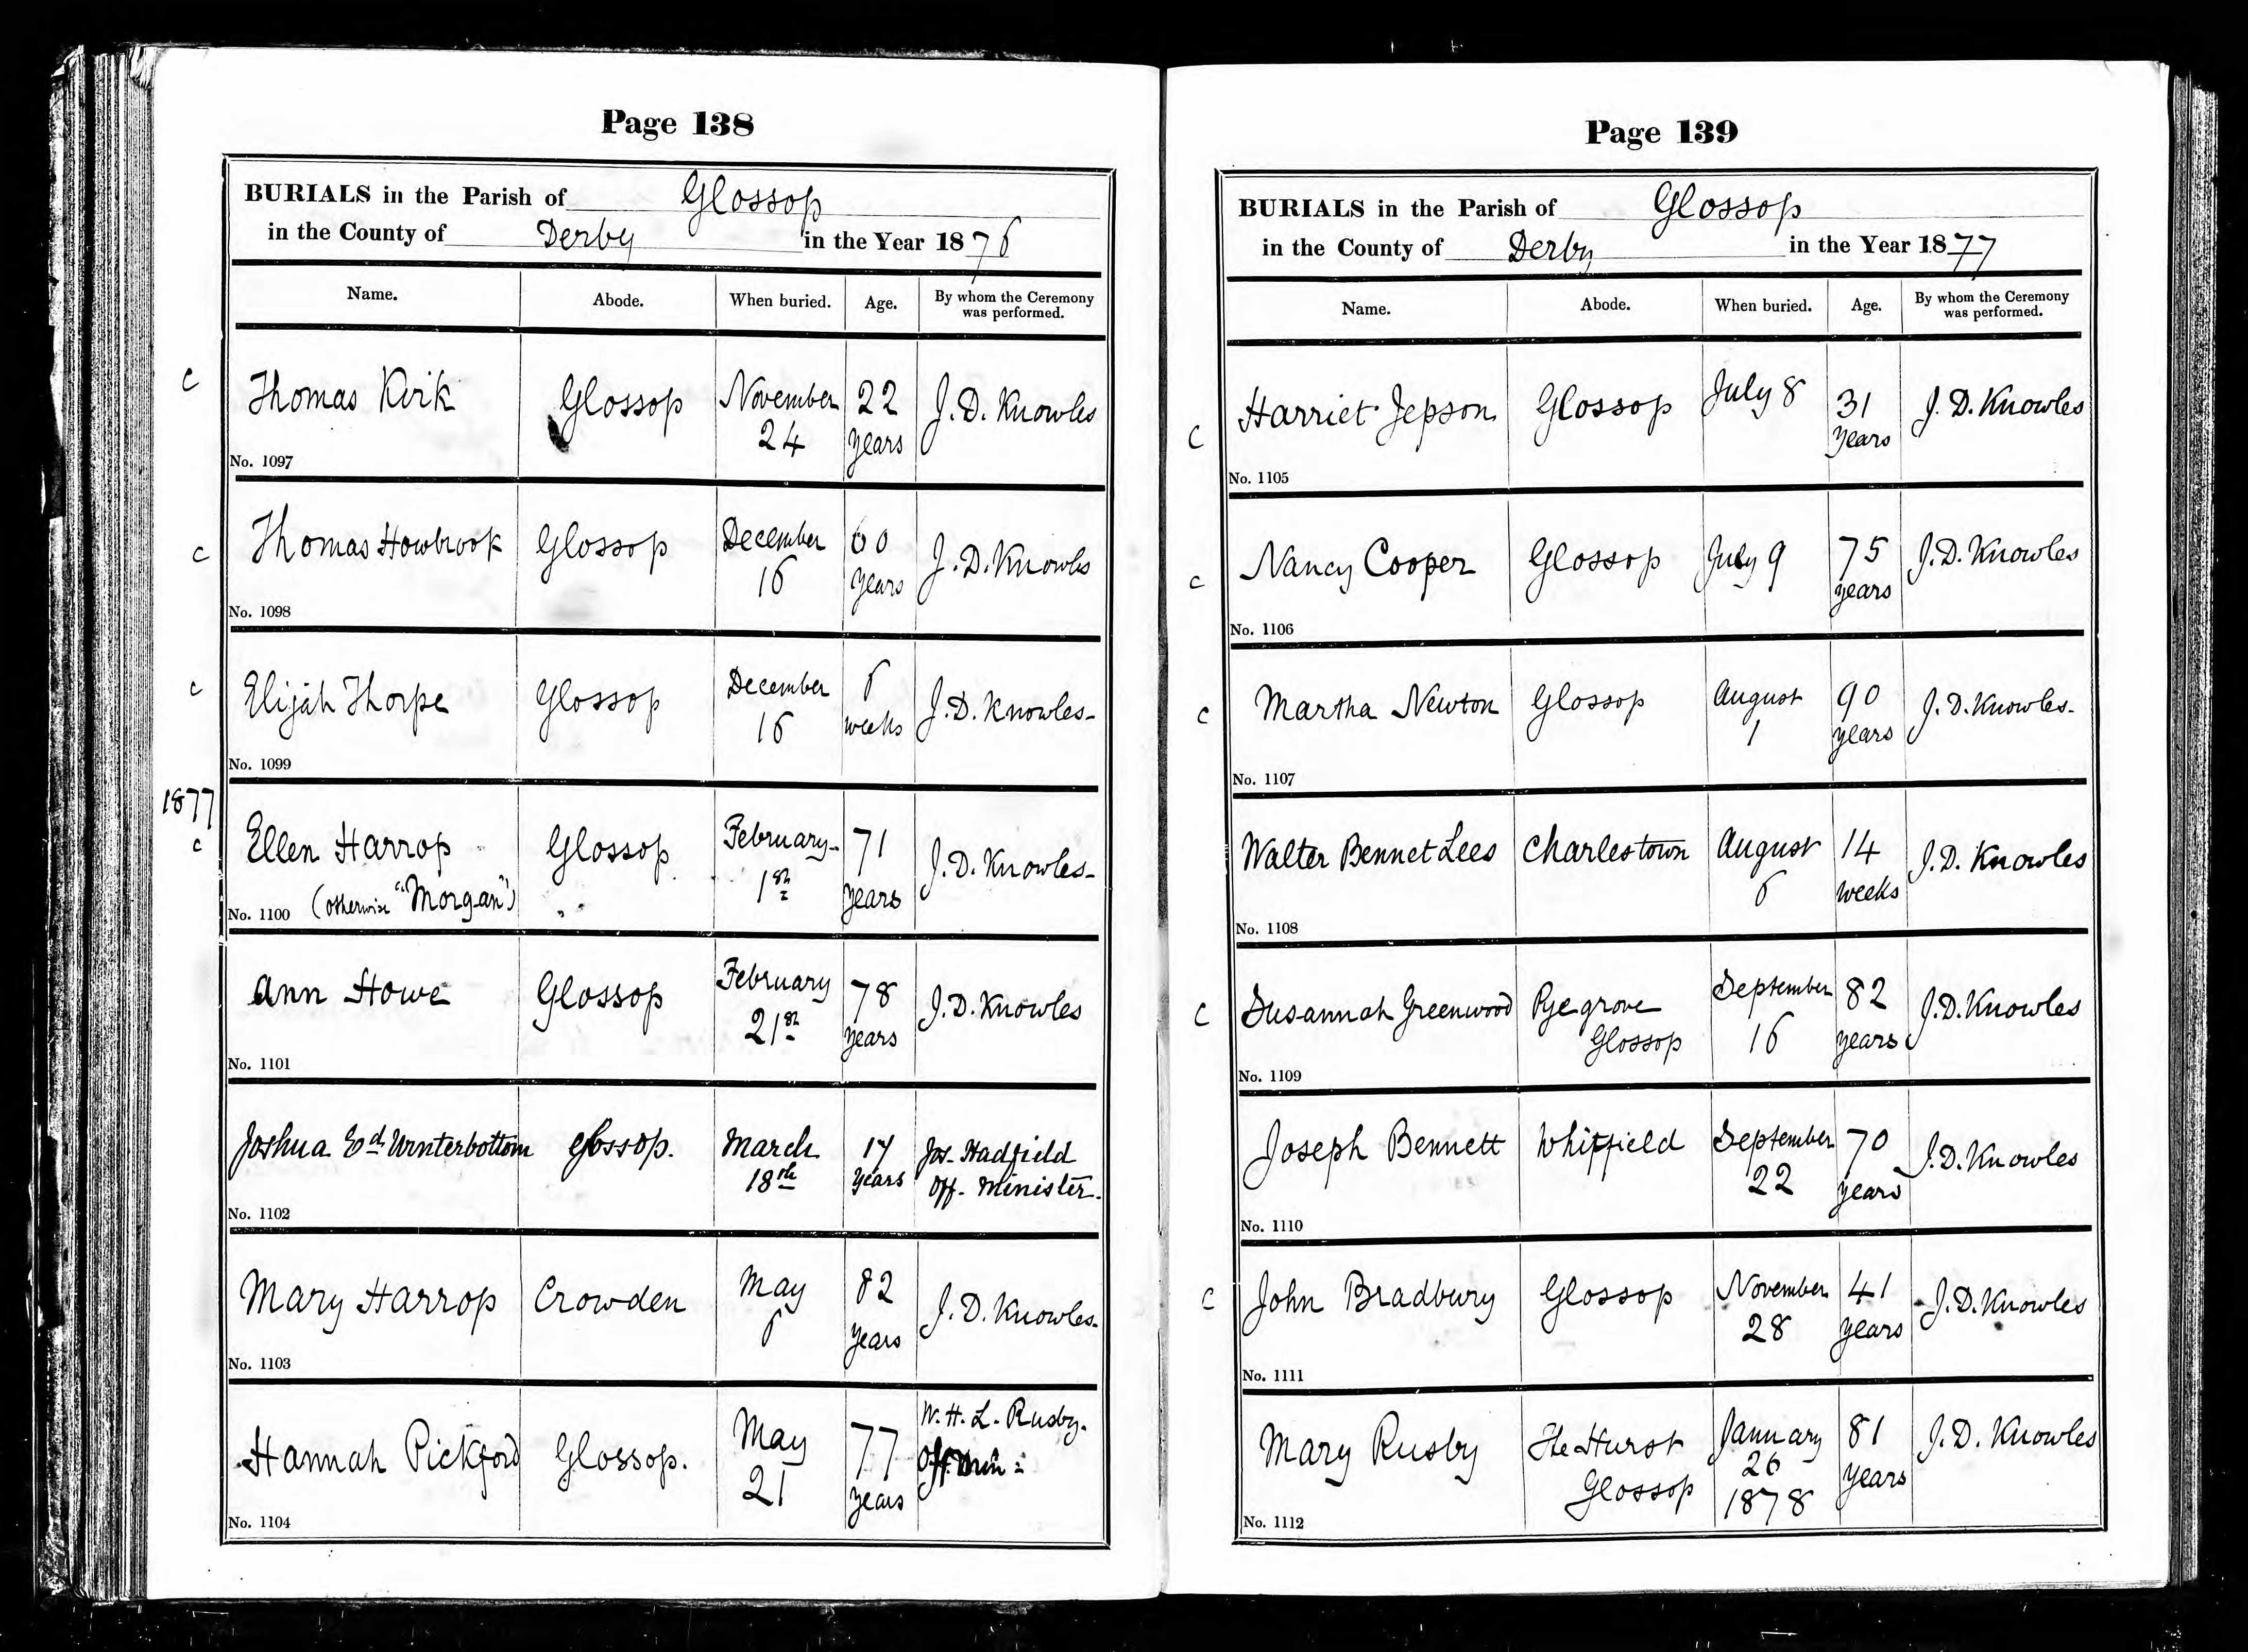 Page 138
BURIALS in the Parish of Glossop
in the County of Derby in the Year 1876
Name. Abode. When buried. Age. By whom the Ceremony
was performed.
c Thomas Kirk Glossop November 22 J. D. Knowles
24 years
No. 1097
c Thomas Howbrook Glossop December 60 J. D. Knowles
16 years
No. 1098
c Elijah Thorpe Glossop December 6 J. D. Knowles
16 weeks
No. 1099
1877
c Ellen Harrop Glossop February 71 J. D. Knowles
1st years
No. 1100 (otherwise "Morgan") „
Ann Howe Glossop February 78 J. D. Knowles
21st years
No. 1101
Joshua Ed Winterbottom Glossop. March 17 Jos. Hadfield
18th years Off. Minister.
No. 1102
Mary Harrop Crowden May 82 J. D. Knowles
6 years
No. 1103
Hannah Pickford Glossop. May 77 W. H. L. Rusby.
21 years Off. Min:
No. 1104
Page 139
BURIALS in the Parish of Glossop
in the County of Derby in the Year 1877
Name. Abode. When buried. Age. By whom the Ceremony
was performed.
c Harriet Jepson Glossop July 8 31 J. D. Knowles
years
No. 1105
c Nancy Cooper Glossop July 9 75 J. D. Knowles
years
No. 1106
c Martha Newton Glossop August 90 J. D. Knowles
1 years
No. 1107
Walter Bennet Lees Charlestown August 14 J. D. Knowles
6 weeks
No. 1108
c Susannah Greenwood Pyegrove September 82 J. D. Knowles
Glossop 16 years
No. 1109
Joseph Bennett Whitfield September 70 J. D. Knowles
22 years
No. 1110
c John Bradbury Glossop November 41 J. D. Knowles
28 years
No. 1111
Mary Rusby The Hurst January 81 J. D. Knowles
Glossop 26 years
1878
No. 1112